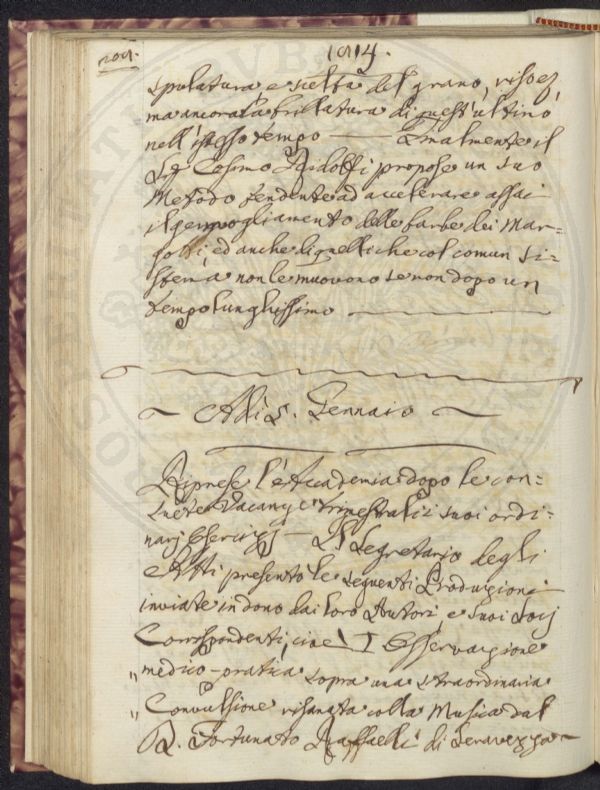 209.
1814.
spulatura e scelta del grano, riso ez
ma ancora la brillatura di quest'ultino
nell'istesso tempo — Finalmente il
Sig. Cosimo Ridolfi propose un suo
Metodo tendente ad accelerare assai
il germogliamento delle barbe dei Mar=
gotti, ed anche di quelli che col comun Si=
stema non le muovono se non dopo un
tempo lunghissimo —
~ Adì 5. Gennaio ~
Riprese l'Accademia dopo le con=
suete Vacanze trimestrali i suoi ordi=
narj Esercizj — Il Segretario degli
Atti presentò le seguenti Produzioni
inviate in dono dai loro Autori, e suoi Socj
Corrispondenti, cioè 1 Osservazione
" medico-pratica sopra una straordinaria
" Convulsione risanata colla Musica dal
D. Fortunato Raffaelli di Seravezza ~